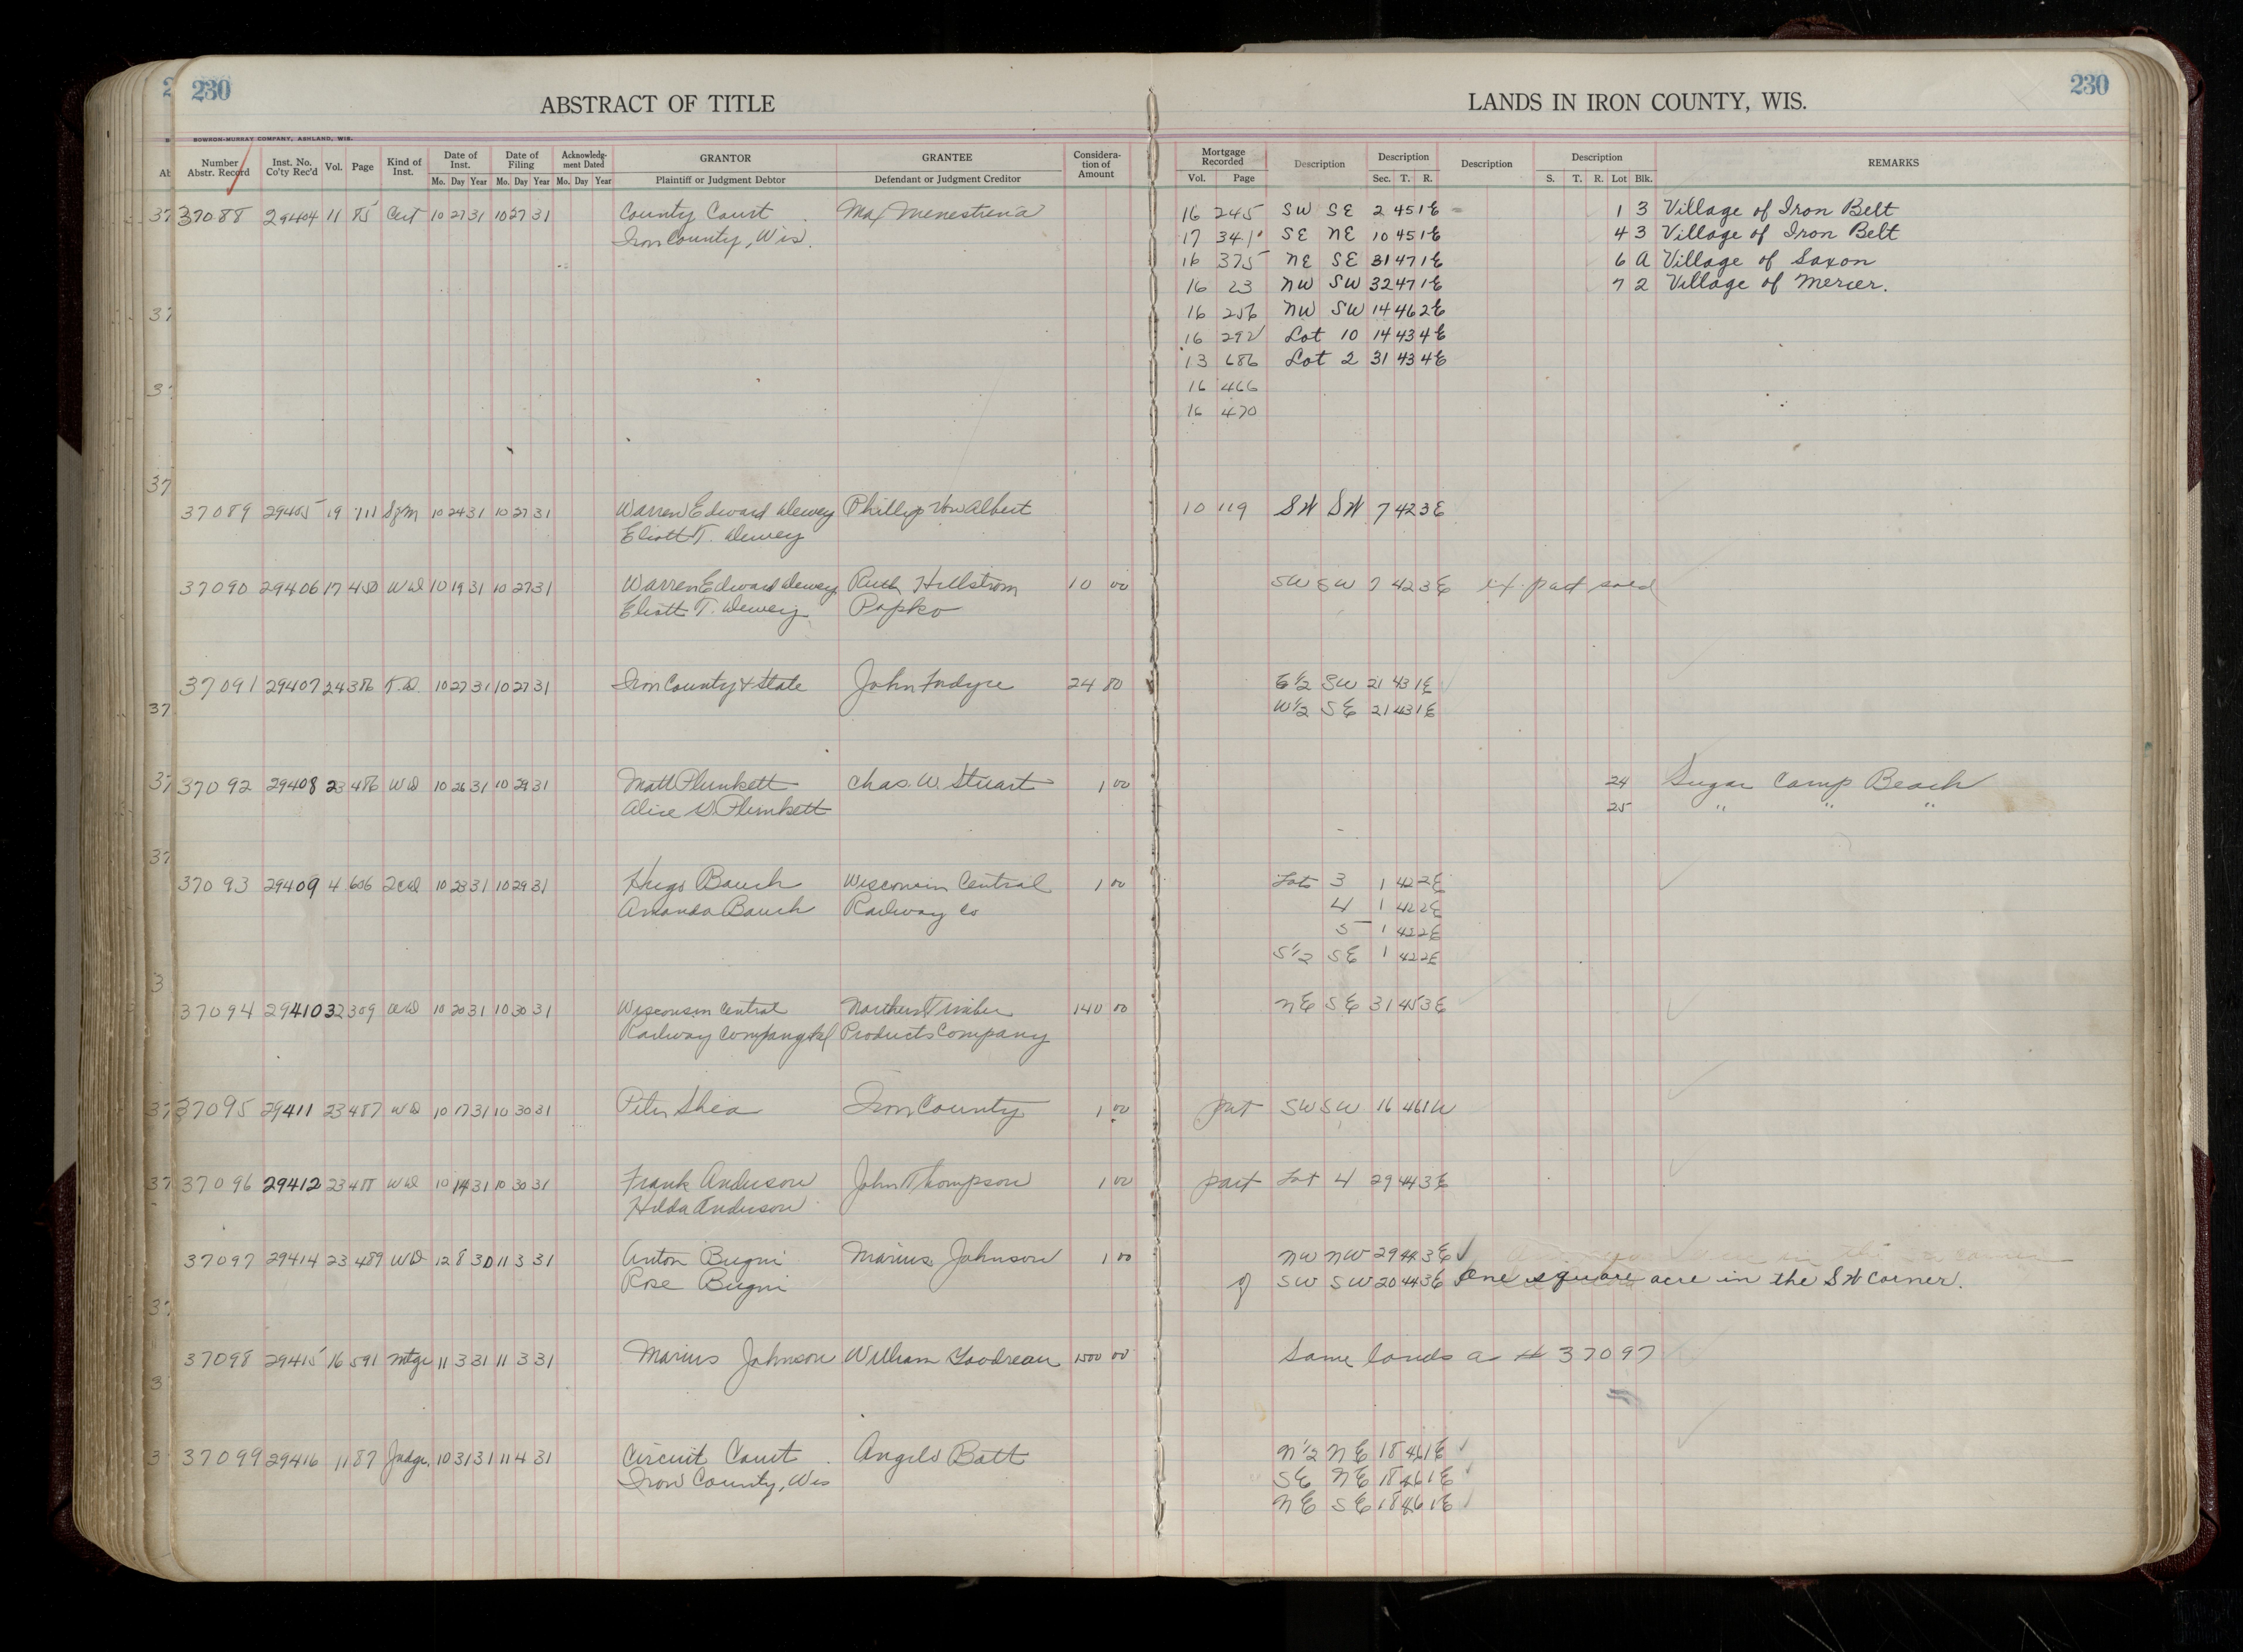 230
230
ABSTRACT OF TITLE
LANDS IN IRON COUNTY, WIS.
BOWRON-MURRAY COMPANY, ASHLAND, WIS.
Number Abstr. Record
Inst. No. Co'ty Rec'd
Vol.
Page
Kind of Inst.
Date of Inst.
Date of Filing
Acknowledg-ment Dated
GRANTOR
GRANTEE
Considera-tion of Amount
Mortgage Recorded
Description
Description
Description
Description
REMARKS
Mo. Day Year Mo. Day Year Mo. Day Year
Plaintiff or Judgment Debtor
Defendant or Judgment Creditor
Vol. Page
Sec. T. R.
S. T. R. Lot Blk.
37088 29404 11 85 Cert 10 27 31 10 27 31 County Court Max 16 245 SW SE 2 45 1E 1 3 Village of Iron Belt
Iron County, Wis. 17 341 SE NE 10 45 1E 4 3 Village of Iron Belt
16 375 NE SE 31 47 1E 6 A Village of Saxon
16 23 NW SW 32 47 1E 7 2 Village of Mercer.
16 256 NW SW 14 46 2E
16 292 Lot 10 14 43 4E
13 686 Lot 2 31 43 4E
16 466
16 470
37089 29405 19 111 10 24 31 10 27 31 Warren Edward Dewey Phillip Von Albert 10 119 SW SW 7 42 3E
Eliott T. Dewey
37090 29406 17 450 WD 10 19 31 10 27 31 Warren Edward Dewey Ruth Hillstrom 10 00 SW SW 7 42 3E part sold
Eliott T. Dewey Popko
37091 29407 24 386 T.D. 10 27 31 10 27 31 Iron County & State John 24 80 E½ SW 21 43 1E
W½ SE 21 43 1E
37092 29408 23 486 WD 10 26 31 10 29 31 Matt Plunkett Chas. W. Stuart 1 00 24 Sugar Camp Beach
Alice D. Plunkett 25 " " "
37093 29409 4 606 2cd 10 23 31 10 29 31 Hugo Bauch Wisconsin Central 1 00 Lots 3 1 42 2E
Amanda Bauch Railway Co 4 1 42 2E
5 1 42 2E
S½ SE 1 42 2E
37094 29410 32 309 WD 10 20 31 10 30 31 Wisconsin Central Northern Timber 140 00 NE SE 31 45 3E
Railway Company Products Company
37095 29411 23 487 WD 10 17 31 10 30 31 Peter Shea Iron County 1 00 part SW SW 16 46 1W
37096 29412 23 488 WD 10 14 31 10 30 31 Frank Anderson John Thompson 1 00 part Lot 4 29 44 3E
Hilda Anderson
37097 29414 23 489 WD 12 8 30 11 3 31 Anton Bugni Marius Johnson 1 00 NW NW 29 44 3E
Rose Bugni of SW SW 20 44 3E One square acre in the SW corner.
37098 29415 16 591 mtge 11 3 31 11 3 31 Marius Johnson William Goodreau 1500 00 Same lands as # 37097
37099 29416 11 87 Judge. 10 31 31 11 4 31 Circuit Court Angelo Batt N½ NE 18 46 1E
Iron County, Wis SE NE 18 46 1E
NE SE 18 46 1E